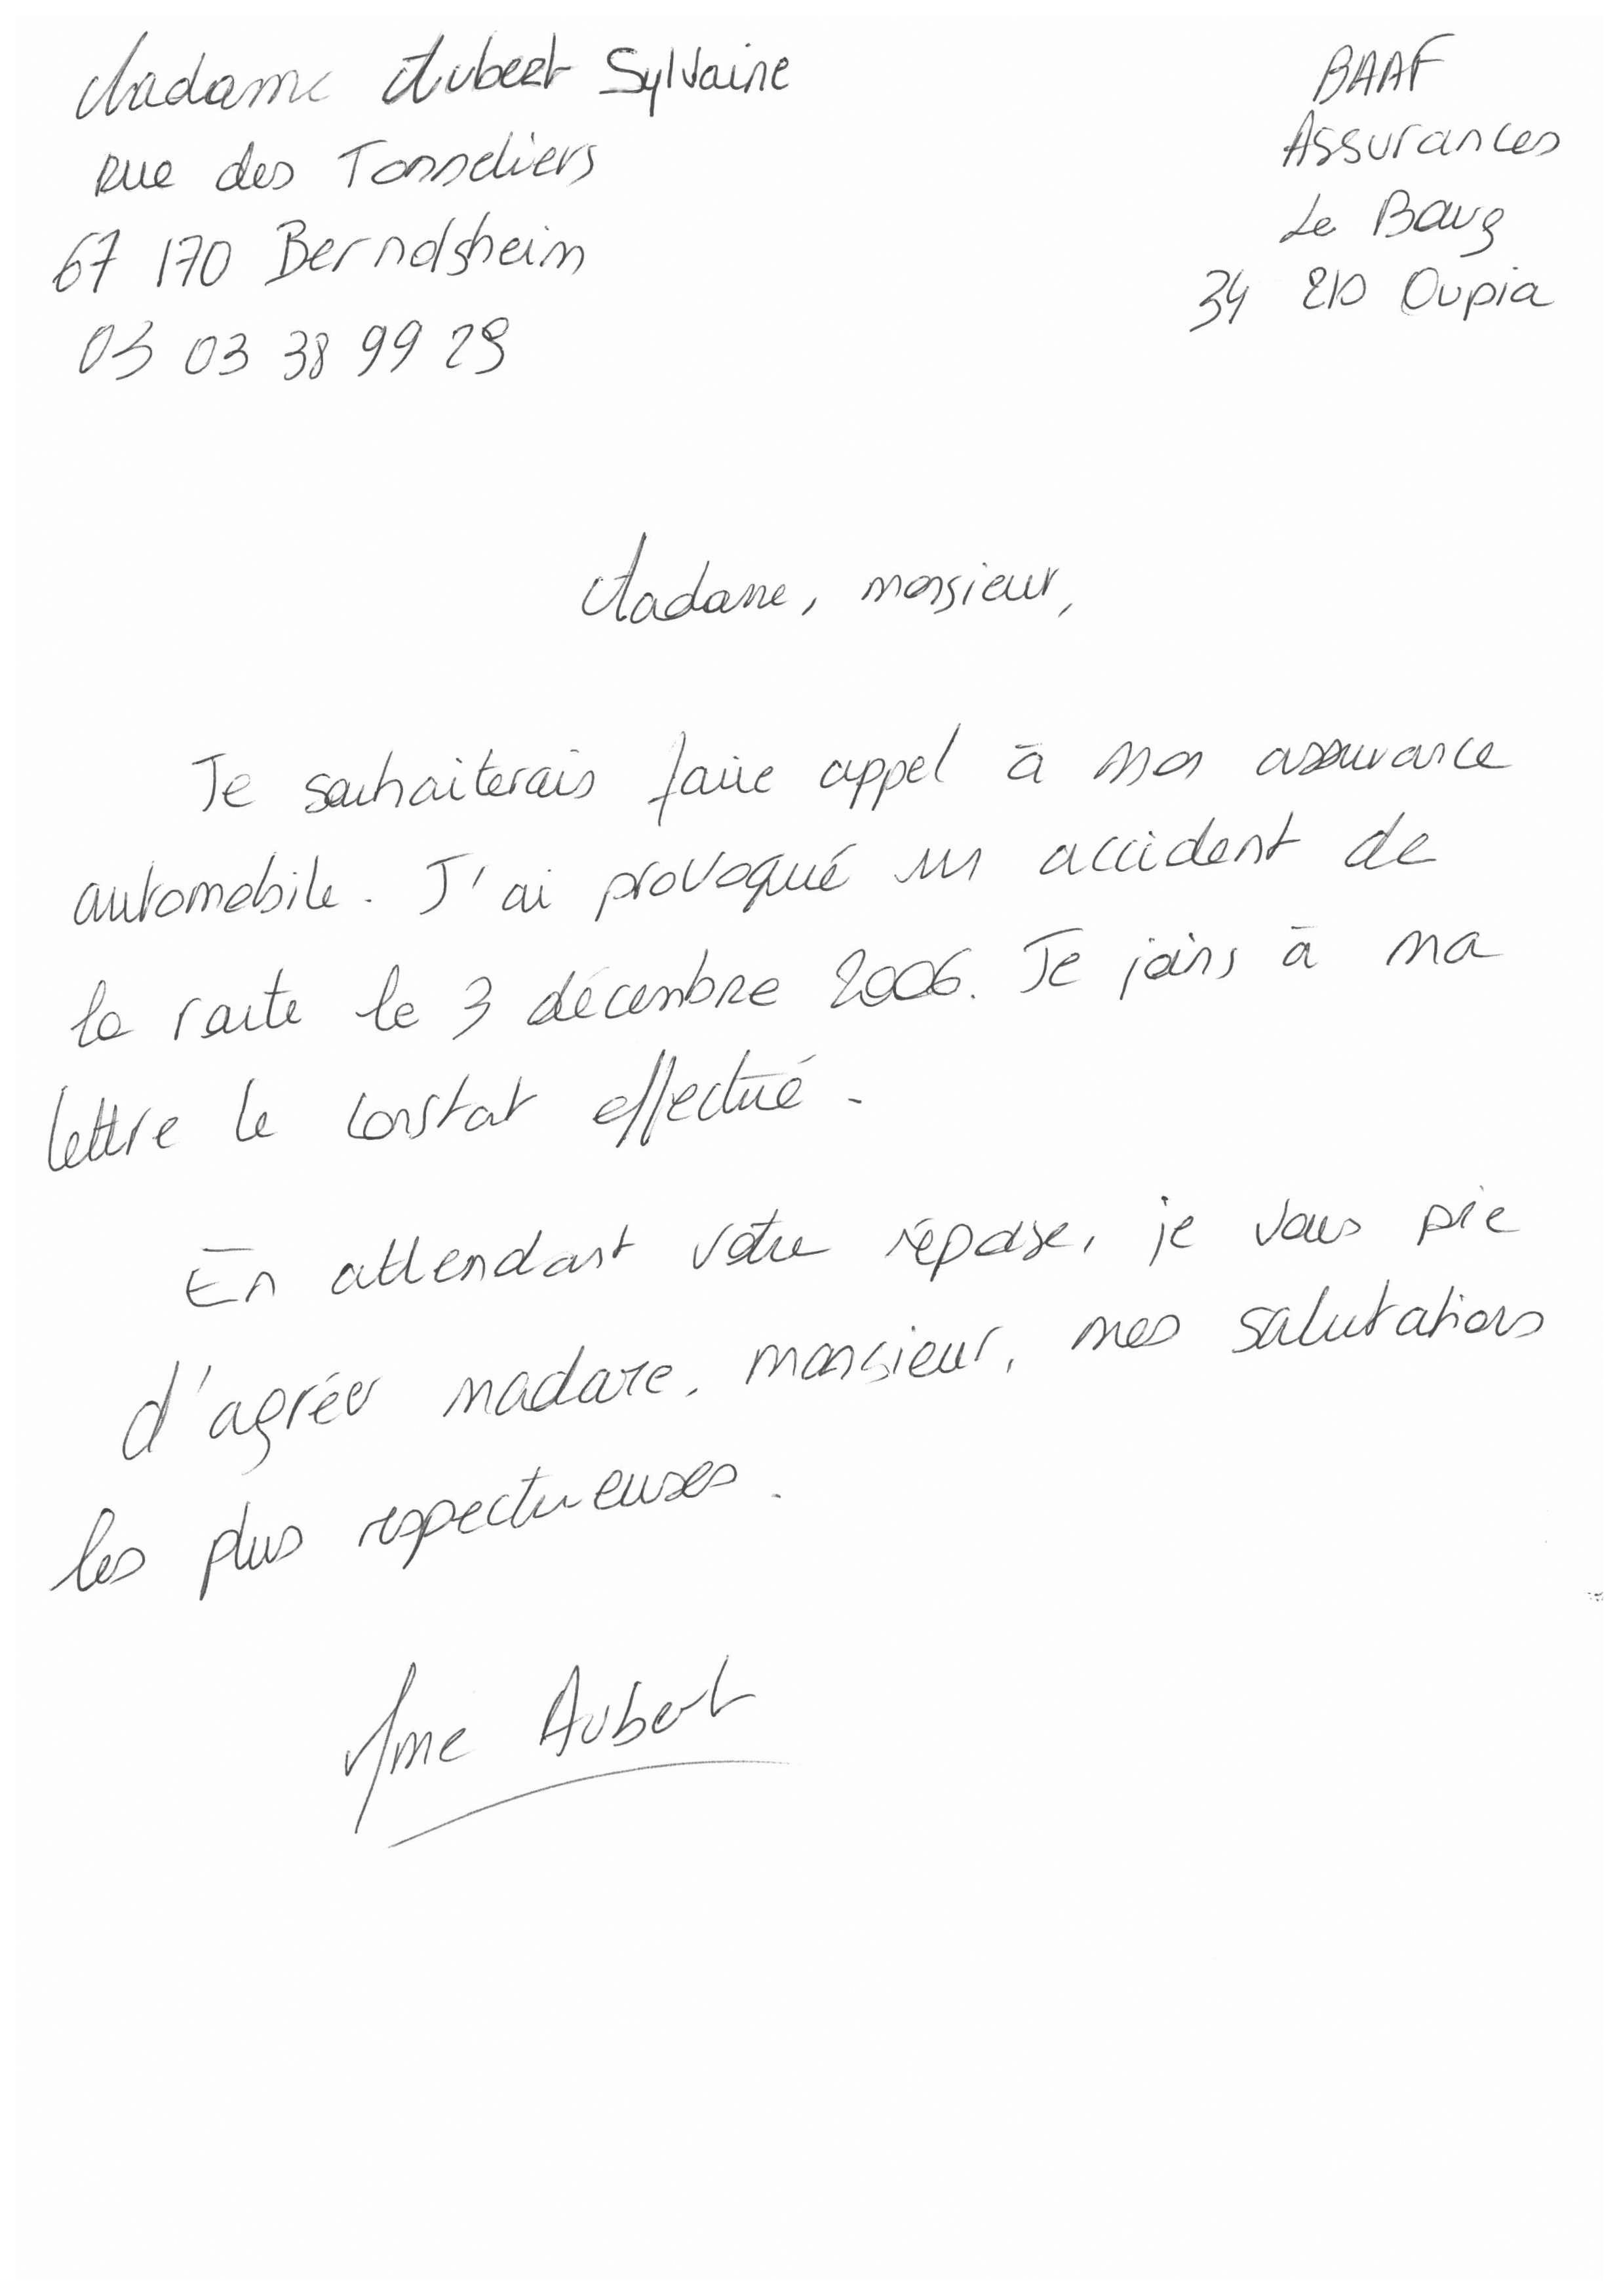 Madame Aubert Sylvaine
rue des Tonneliers
67 170 Berndsheim
03 03 38 99 29
BAAF
Assurances
Le Bourg
34 210 Oupia
Madame, monsieur,
Je souhaiterais faire appel à mon assurance
automobile. J'ai provoqué un accident de
la route le 3 décembre 2006. Je joins à ma
lettre le constat effectué.
En attendant votre réponse, je vous prie
d'agréer madame, monsieur, mes salutations
les plus respectueuses.
Mme Aubert